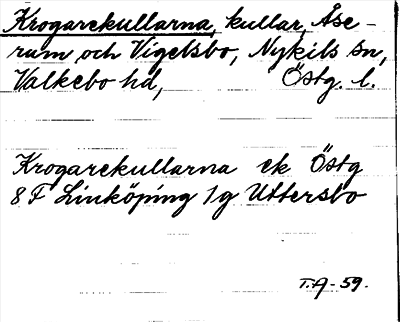 Krogarekullarna, kullar, Åse-
rum och Vigelsbo, Nykils sn,
Valkebo hd, Östg. l.
Krogarekullarna ek Östg
8 F Linköping 1g Uttersbo
T.A - 59.